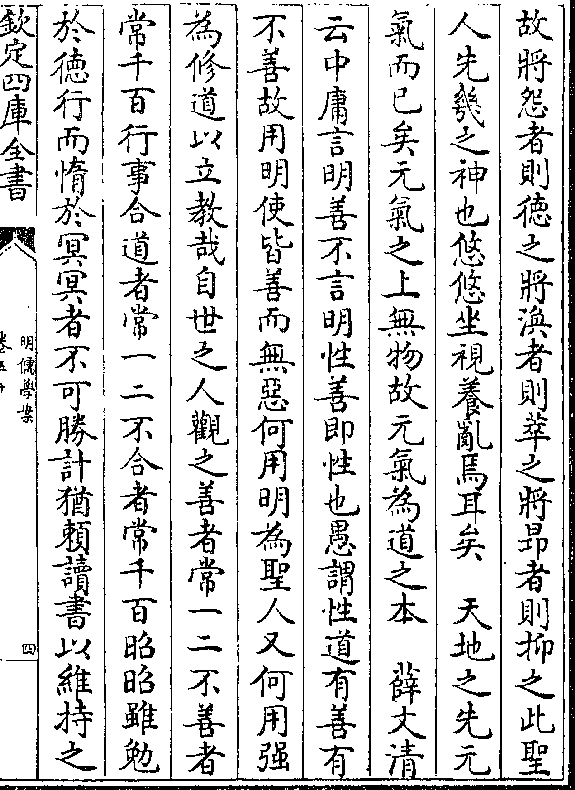 故將怨者則徳之將渙者則萃之將昂者則抑之此聖
人先幾之神也悠悠坐視養亂焉耳矣　天地之先元
氣而已矣元氣之上無物故元氣為道之本　薛文清
云中庸言明善不言明性善即性也愚謂性道有善有
不善故用明使皆善而無惡何用明為聖人又何用强
為修道以立教哉自世之人觀之善者常一二不善者
常千百行事合道者常一二不合者常千百昭昭雖勉
於徳行而惰於冥冥者不可勝計猶頼讀書以維持之
欽定四庫全書
明儒學案
卷五十
四